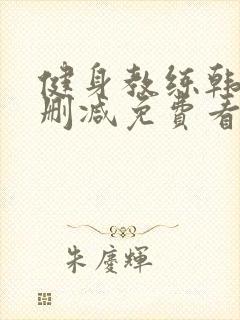 健身教练韩
删减免費看
朱慶輝